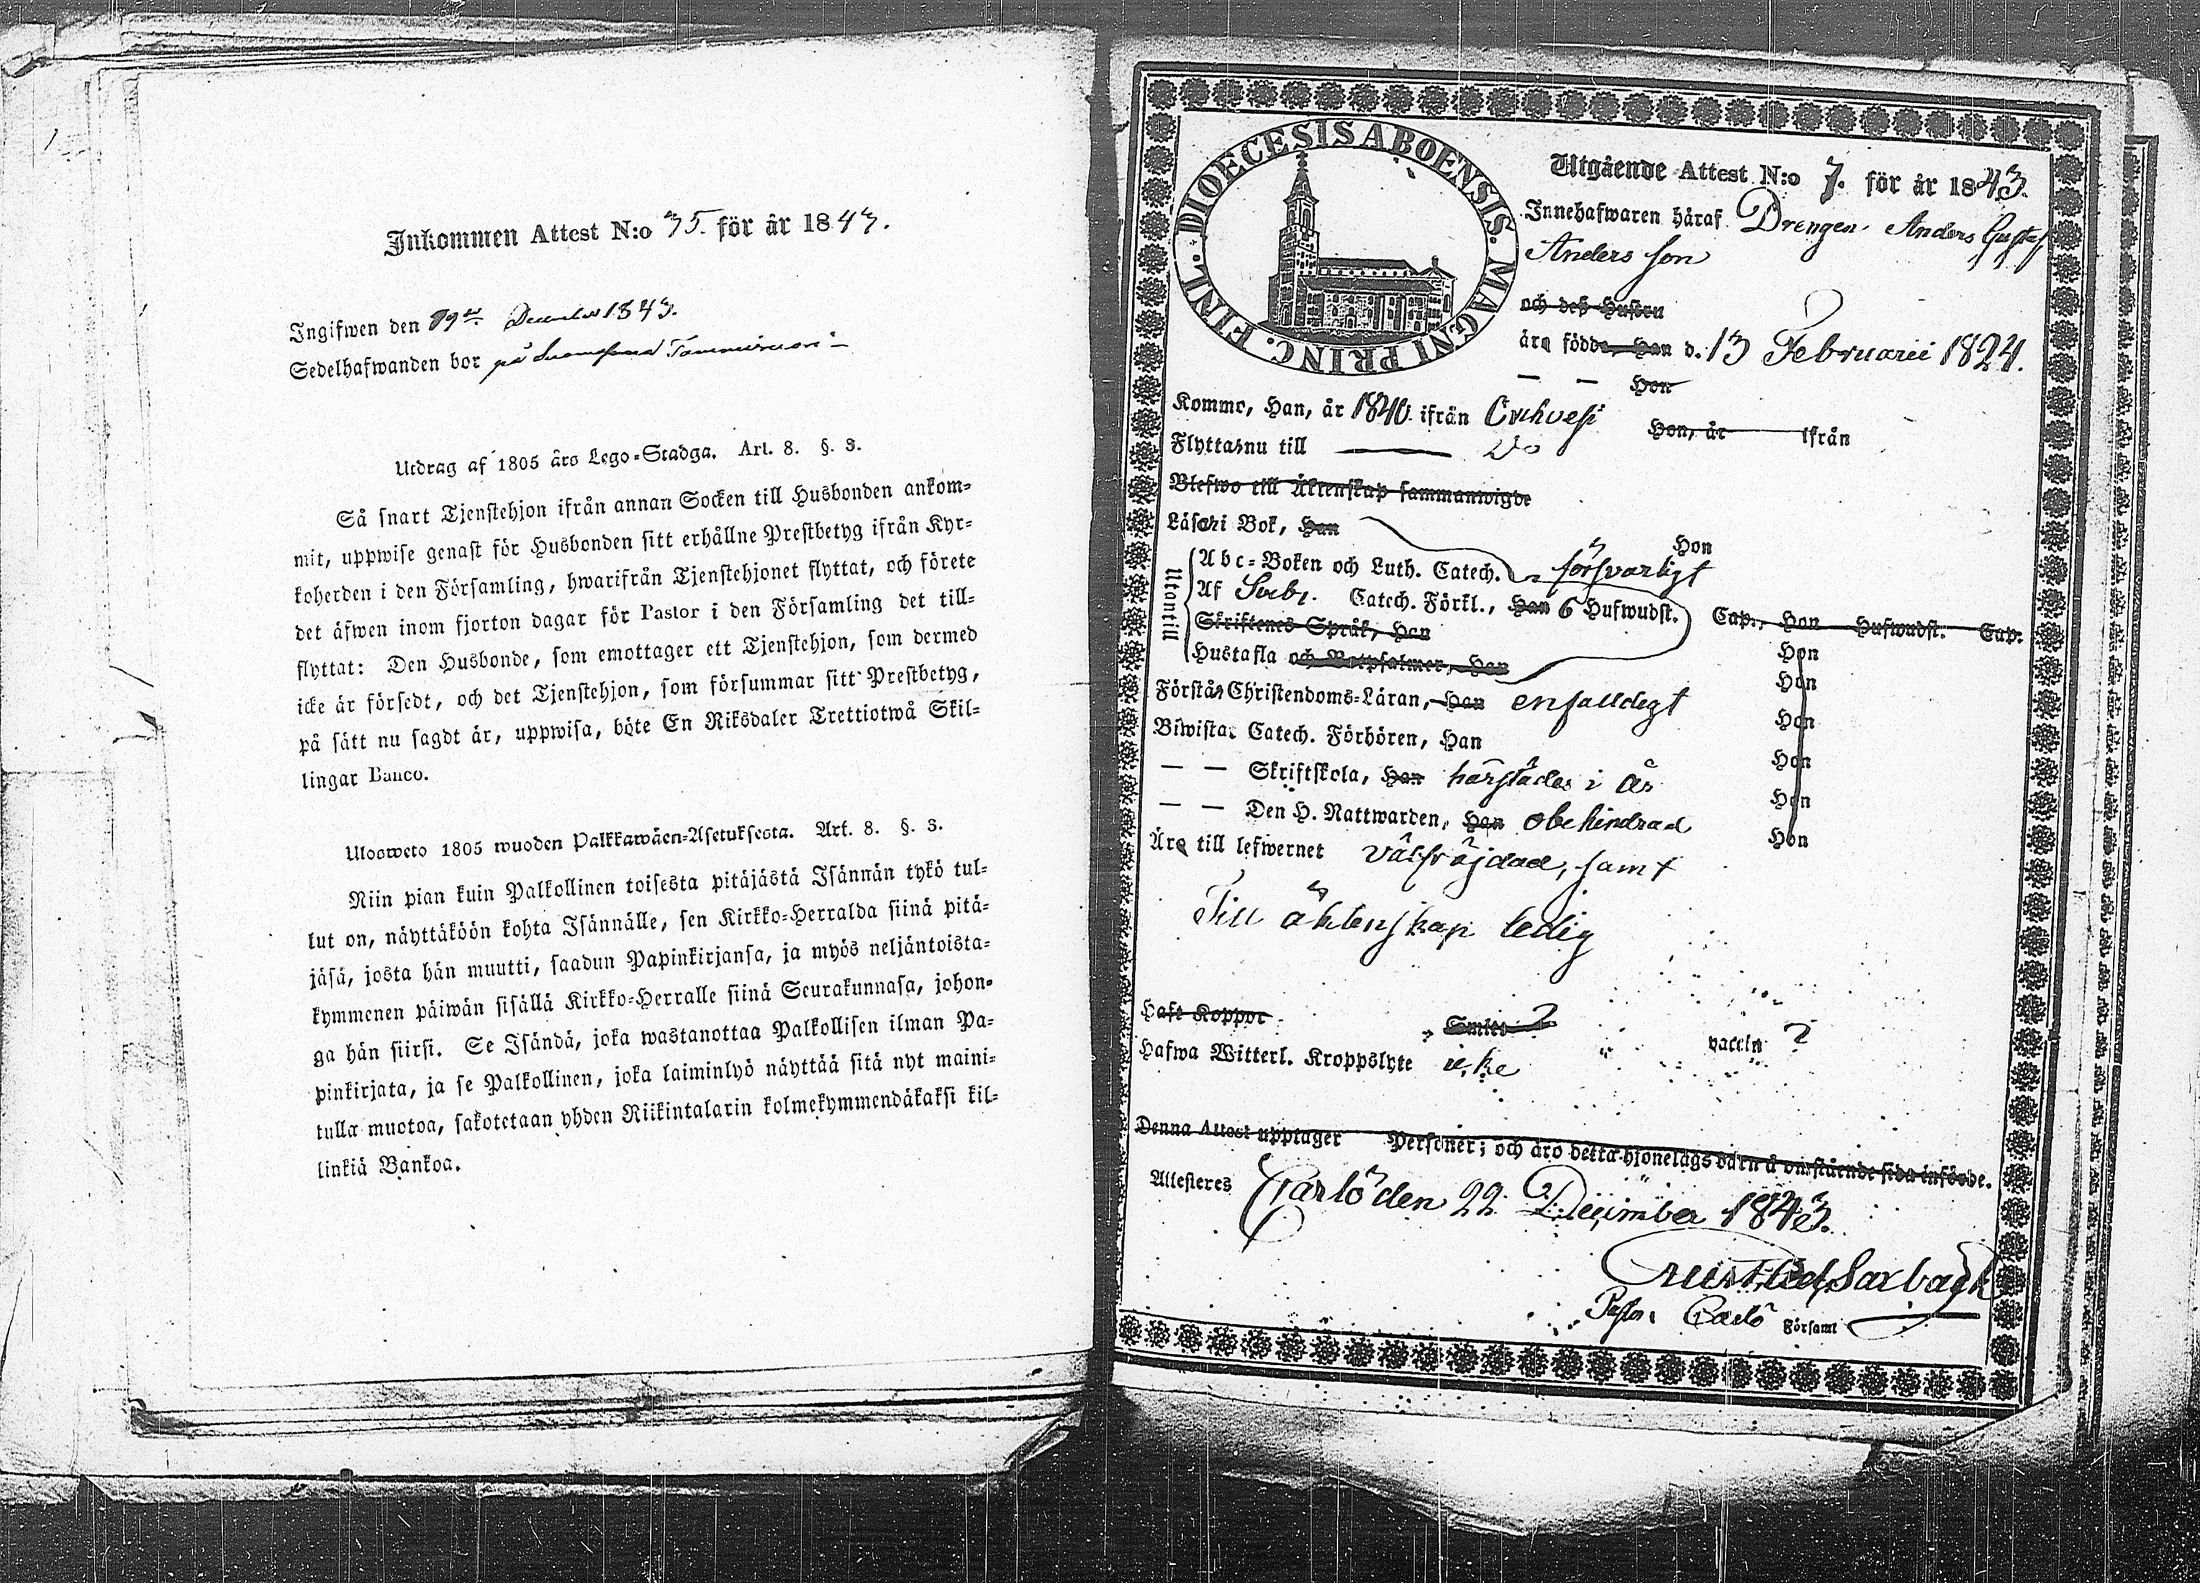 Inkommen Attest N:o 35. för år 1843.
Ingifwen den 29de December 1843.
Sedelhafwanden bor på
Utdrag af 1805 års Lego-Stadga. Art. 8. §. 3.
Så snart Tjenstehjon ifrån annan Socken till Husbonden ankom-
mit, uppwise genast för Husbonden sitt erhållne Prestbetyg ifrån Kyr-
koherden i den Församling, hwarifrån Tjenstehjonet flyttat, och förete
det äfwen inom fjorton dagar för Pastor i den Församling det till-
flyttat: Den Husbonde, som emottager ett Tjenstehjon, som dermed
icke är försedt, och det Tjenstehjon, som försummar sitt Prestbetyg,
på sätt nu sagdt är, uppwisa, böte En Riksdaler Trettiotwå Skil-
lingar Banco.
Ulosweto 1805 wuoden Palkkawäen-Asetuksesta. Art. 8. §. 3.
Niin pian kuin Palkollinen toisesta pitäjästä Isännän tykö tul-
lut on, näyttäköön kohta Isännälle, sen Kirkko-Herralda siinä pitä-
jäsä, josta hän muutti, saadun Papinkirjansa, ja myös neljäntoista-
kymmenen päiwän sisällä Kirkko-Herralle siinä Seurakunnasa, johon-
ga hän siirsi. Se Isändä, joka wastanottaa Palkollisen ilman Pa-
pinkirjata, ja se Palkollinen, joka laiminlyö näyttää sitä nyt maini-
tulla muotoa, sakotetaan yhden Riikintalarin kolmekymmendäkaksi kil-
linkiä Bankoa.
DIOECESIS ABOENSIS. MAGNI PRINC. FINL.
Utgående Attest N:o 7. för år 1843.
Innehafwaren häraf Drengen Anders Gustaf
Anders son
och deß Hustru
äro födde, Han d. 13 Februarii 1824.
— — Hon
Kommo, Han, år 1840 ifrån Hon, år ifrån
Flytta nu till
Blefwo till Äktenskap sammanwigde
Läsa i Bok, Han Hon
Utontill
Abc-Boken och Luth. Catech. försvarligt
Af Catech. Förkl., Han 6 Hufwudst. Cap., Hon Hufwudst. Cap.
Skriftenes Språk, Han Hon
Hustafla och Botpsalmer, Han Hon
Förstå Christendoms-Läran, Han enfalldigt Hon
Biwista Catech. Förhören, Han Hon
— — Skriftskola, Han härstädes i år Hon
— — Den H. Nattwarden, Han obehindrad Hon
Äro till lefwernet välfräjdad, samt
Till äktenskap ledig
Haft Koppor Smitt ? vaccin ?
Hafwa Witterl. Kroppslyte icke
Denna Attest upptager Personer; och äro detta hjonelags barn å omstående sida införde.
Attesteres Carlö den 22 December 1843.
Pastor i Carlö Församl